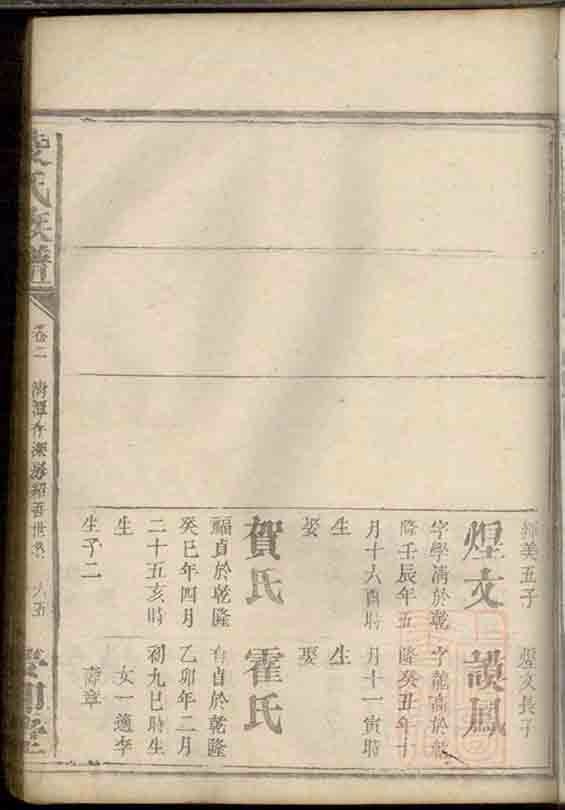 輝美五子
煌文
字學清於乾
隆壬辰年五
月十六酉時
生
娶
賀氏
福貞於乾隆
癸巳年四月
二十五亥時
生
生子二
煌文長子
謨鳳
字龍高於乾
隆癸丑年十
月十一寅時
生
娶
霍氏
有貞於乾隆
乙卯年二月
初九巳時生
女一適李
壽章
氏族譜
卷二
六五